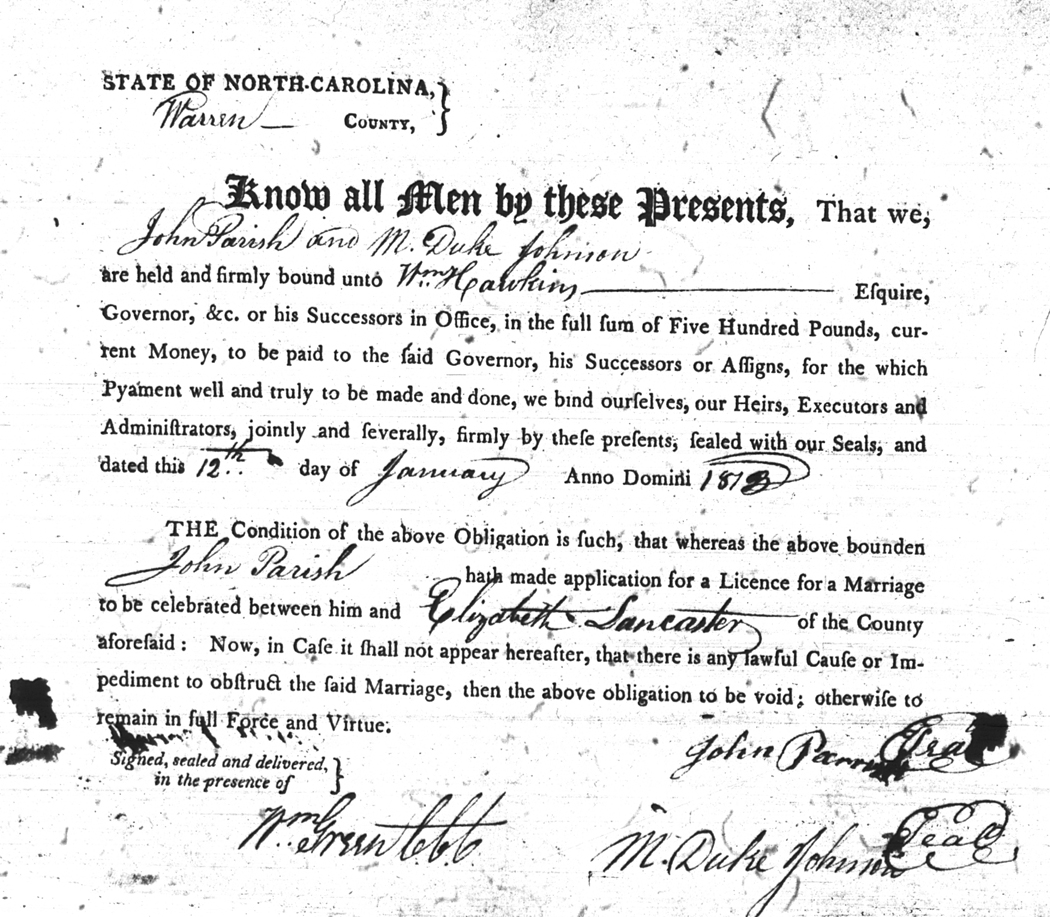 STATE OF NORTH-CAROLINA,
Warren County,
Know all Men by these Presents, That we,
John Parish and M. Duke Johnson
are held and firmly bound unto Wm Hawkins Eſquire,
Governor, &c. or his Succeſſors in Office, in the full ſum of Five Hundred Pounds, cur-
rent Money, to be paid to the ſaid Governor, his Succeſſors or Aſſigns, for the which
Pyament well and truly to be made and done, we bind ourſelves, our Heirs, Executors and
Adminiſtrators, jointly and ſeverally, firmly by theſe preſents, ſealed with our Seals, and
dated this 12th day of January Anno Domini 1813
THE Condition of the above Obligation is ſuch, that whereas the above bounden
John Parish hath made application for a Licence for a Marriage
to be celebrated between him and Elizabeth Lancaster of the County
aforeſaid: Now, in Caſe it ſhall not appear hereafter, that there is any lawful Cauſe or Im-
pediment to obſtruct the ſaid Marriage, then the above obligation to be void; otherwiſe to
remain in full Force and Virtue.
Signed, sealed and delivered,
in the presence of
John Parrish Seal
Wm Green
M. Duke Johnson Seal